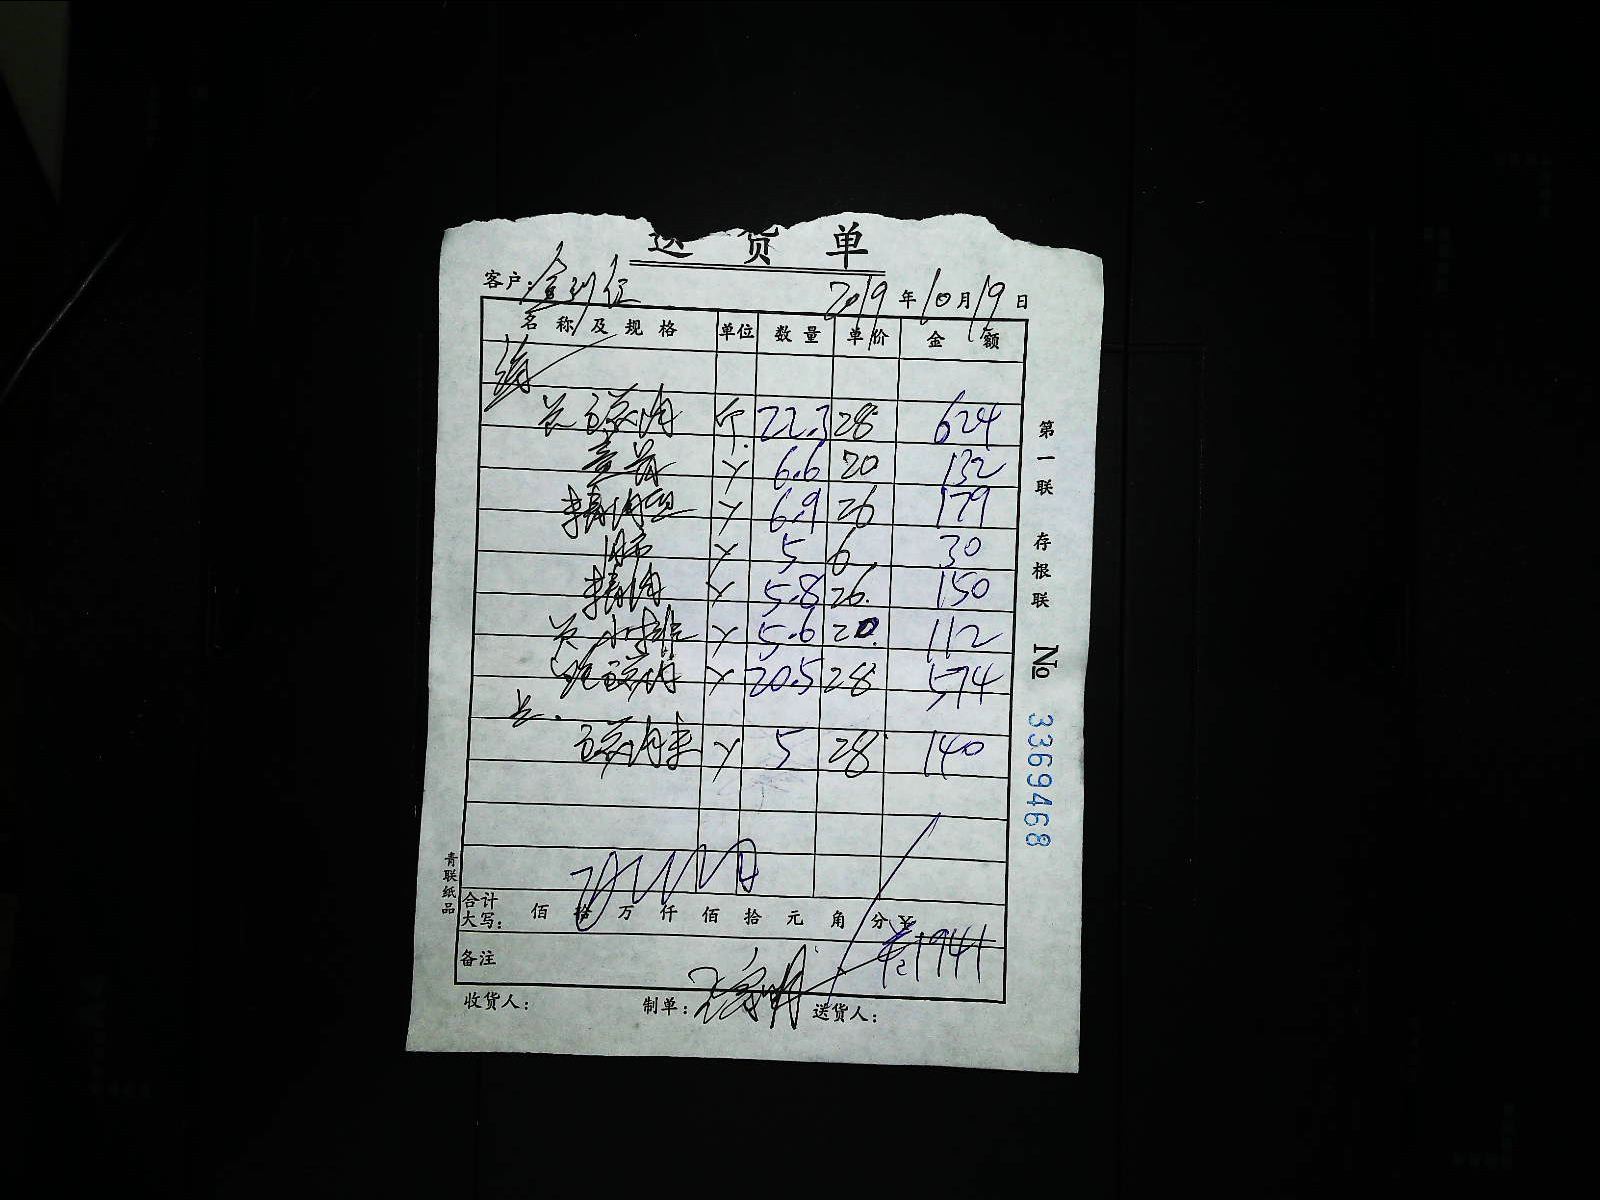 送货单
客户: 2019年10月19日
名称及规格 单位 数量 单价 金额
五花肉 斤 22.3 28 624
6.6 20 132
精肉 6.9 26 179
肺 5 6 30
精肉 5.8 26 150
小排 5.6 20 112
五花肉 20.5 28 574
五花肉 5 28 140
合计大写: 佰 拾 万 仟 佰 拾 元 角 分 ¥
1941
备注
收货人: 制单: 送货人:
第一联 存根联 No 3369468
青联纸品